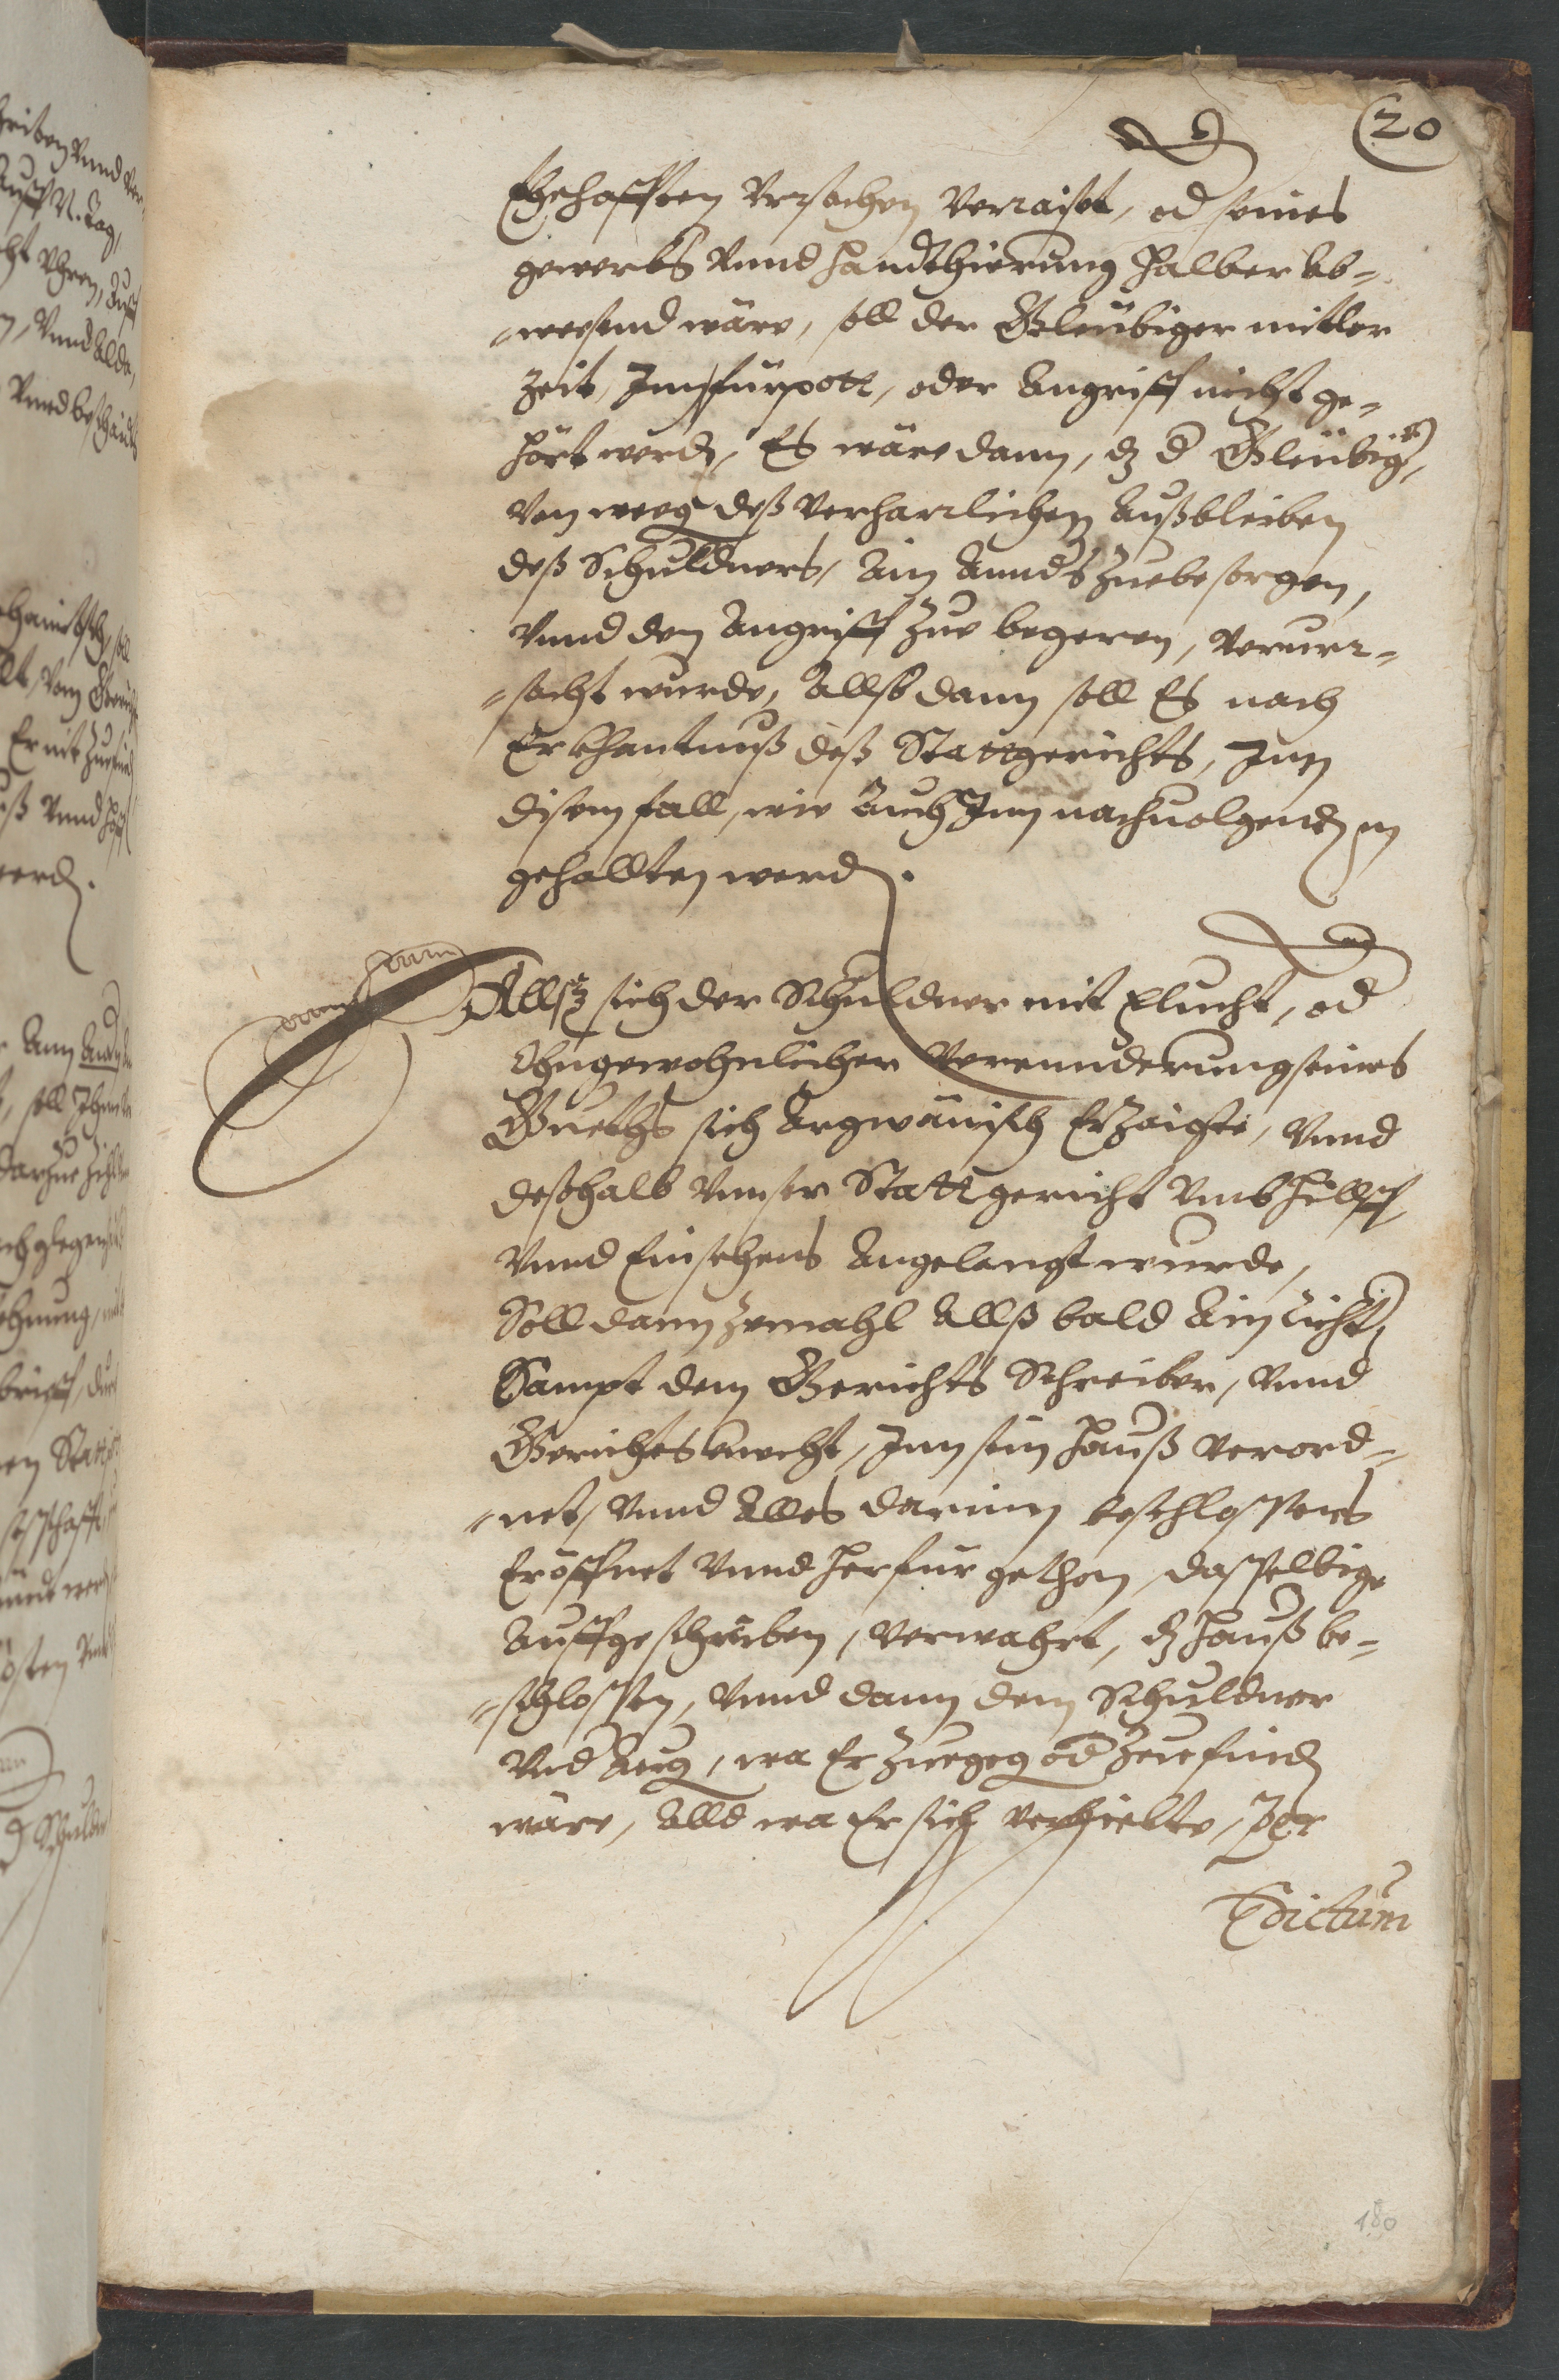 20
Ehehafften Vrsachen Verraiset, od seines
gewerbs Vnnd Handthierung halber Ab-
-weesend wäre, soll der Gleübiger mitler
Zeit, Im fürpott, oder Angriff nicht ge-
hört werd, Es wäre dann, dz d Gleübig,
Von weeg deß verharrlichen Außbleiben
deß Schuldners, Ain Annds Zuebesorgen,
Vnnd den Angriff Zue begeren, verurr-
-sacht wurde, Allßdann soll Es nach
Erkhantnuß deß Stattgerichts, Inn
disem fall, wie Auch Inn nachuolgend
gehallten werd.
Allß sich der Schuldner mit flucht, od
Vngewohnlicher Verennderung seines
Gueths sich Argwänisch Erzaigte, Vnnd
deßhalb Vnnser Stattgericht Vmb Hülff,
Vnnd Einsehens Angelangt wurde,
Soll dann zemahl Allß bald Ain
Sampt dem Gerichts Schreiber, Vnnd
Gerichts knecht, Inn sein Hauß verord-
-net, Vnnd Alles darinn beschlossens
Eröffnet Vnnd herfür gethon, dasselbige
Auffgeschriben, verwahrt, dz Hauß be-
-schlossen, Vnnd dann dem Schuldner
Vnd Aug, wa Er Zuegeg od Zue find
wäre, Alld wa Er sich verhielte, Per
Edictum
180